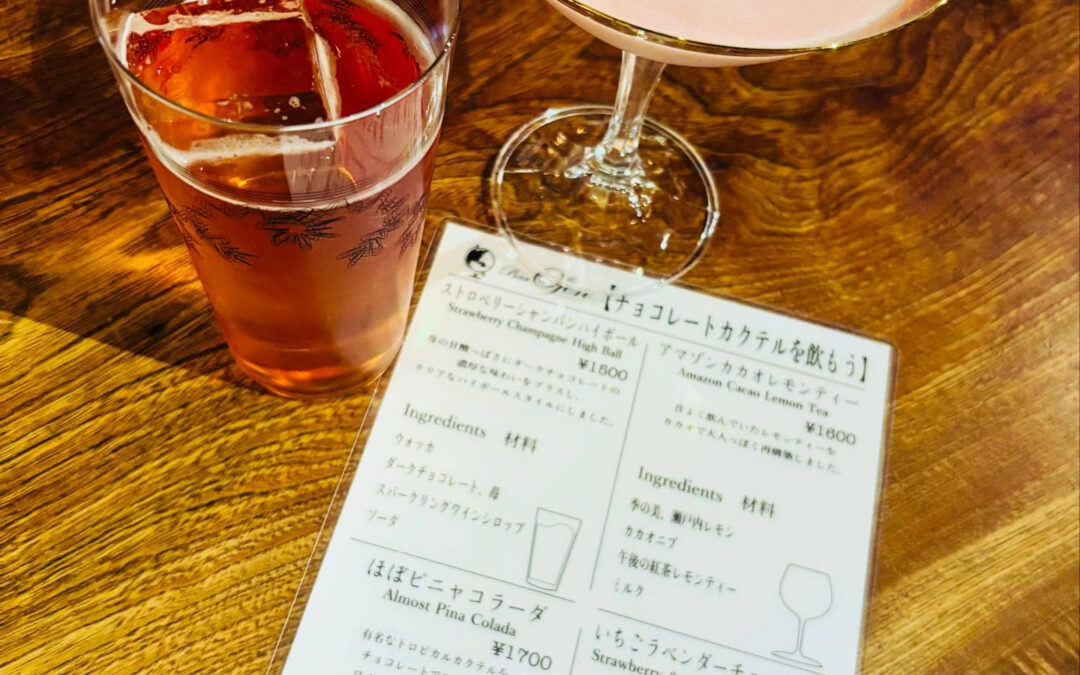 Bar
【チョコレートカクテルを飲もう】
ストロベリーシャンパンハイボール
Strawberry Champagne High Ball
¥1500
苺の甘酸っぱさにダークチョコレートの
濃厚な味わいをプラスし、
クリアなハイボールスタイルにしました。
Ingredients 材料
ウォッカ
ダークチョコレート、苺
スパークリングワインシロップ
ソーダ
アマゾンカカオレモンティー
Amazon Cacao Lemon Tea
¥1600
昔よく飲んでいたレモンティーを
カカオで大人っぽく再構築しました。
Ingredients 材料
季の美、瀬戸内レモン
カカオニブ
午後の紅茶レモンティー
ミルク
ほぼピニャコラーダ
Almost Pina Colada
¥1700
有名なトロピカルカクテルを
いちごラベンダーチ
Strawberry